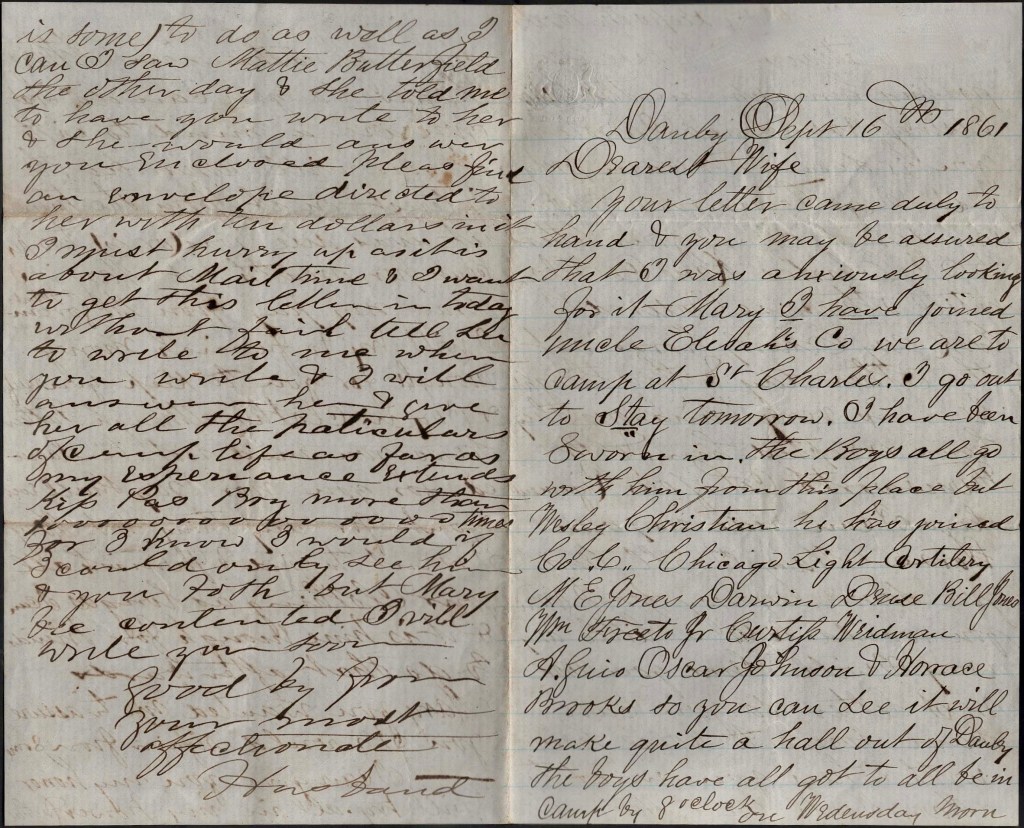 Danby Sept 16th 1861
Dearest Wife
Your letter came duly to
hand & you may be assured
that I was anxiously looking
for it Mary I have joined
Uncle Elieah's Co we are to
camp at St Charles. I go out
to Stay tomorrow. I have been
Sworn in. the Boys all go
with him from this place but
Wesley Christian he has joined
Co. C.. Chicago Light Artilery
M E Jones Darwin Druse Bill Jones
Wm Jr Curtiss Weidman
A. Guio Oscar Johnson & Horrace
Brooks so you can see it will
make quite a hall out of Danby
the boys have all got to all be in
camp by 8 oclock on Wedensday Morn
is some) to do as well as I
can I saw Mattie Butterfield
the other day & she told me
to have you write to her
& she would answer
you Enclosed pleas find
an envelope directed to
her with ten dollars in it
I must hurry up as it is
about Mail time & I want
to get this letter in today
without fail tell
to write to me when
you write & I will
answer her & give
her all the paticulars
of camp life as far as
my experiance extends
Kiss Boy more than
times
for I know I would if
I could only see him
& you both but Mary
be contented I will
write you soon
Good by from
your most
affectionate
Husband